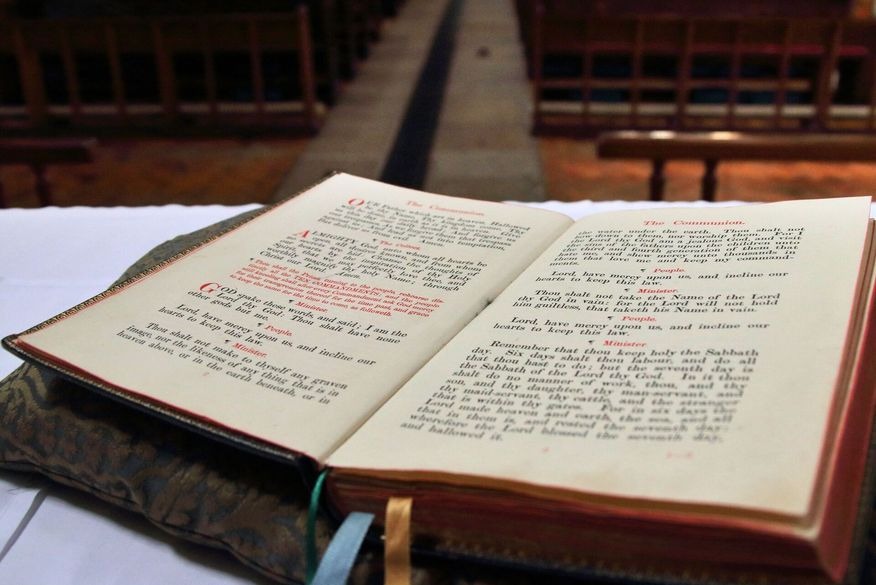 The Communion.
OUR Father which art in heaven, Hallowed
be thy Name, Thy kingdom come, Thy
will be done, in earth as it is in heaven. Give
us this day our daily bread. And forgive us our
trespasses, As we forgive them that trespass
against us. And lead us not into temptation;
But deliver us from evil. Amen.
¶ The Collect.
ALMIGHTY God, unto whom all hearts be
open, all desires known, and from whom
no secrets are hid; Cleanse the thoughts of
our hearts by the inspiration of thy Holy
Spirit, that we may perfectly love thee, and
worthily magnify thy holy Name; through
Christ our Lord. Amen.
¶ Then shall the Priest, turning to the people, rehearse dis-
tinctly all the TEN COMMANDMENTS; and the people
still kneeling shall after every Commandment ask God mercy
for their transgression thereof for the time past, and grace
to keep the same for the time to come, as followeth.
¶ Minister.
GOD spake these words, and said; I am the
Lord thy God: Thou shalt have none
other gods but me.
¶ People.
Lord, have mercy upon us, and incline our
hearts to keep this law.
¶ Minister.
Thou shalt not make to thyself any graven
image, nor the likeness of any thing that is in
heaven above, or in the earth beneath, or in
The Communion.
the water under the earth. Thou shalt not
bow down to them, nor worship them: for I
the Lord thy God am a jealous God, and visit
the sins of the fathers upon the children unto
the third and fourth generation of them that
hate me, and shew mercy unto thousands in
them that love me and keep my command-
¶ People.
Lord, have mercy upon us, and incline our
hearts to keep this law.
¶ Minister.
Thou shalt not take the Name of the Lord
thy God in vain: for the Lord will not hold
him guiltless, that taketh his Name in vain.
¶ People.
Lord, have mercy upon us, and incline our
hearts to keep this law.
¶ Minister.
Remember that thou keep holy the Sabbath
day. Six days shalt thou labour, and do all
that thou hast to do; but the seventh day is
the Sabbath of the Lord thy God. In it thou
shalt do no manner of work, thou, and thy
son, and thy daughter, thy man-servant, and
thy maid-servant, thy cattle, and the stranger
that is within thy gates. For in six days the
Lord made heaven and earth, the sea, and all
that in them is, and rested the seventh day:
wherefore the Lord blessed the seventh day,
and hallowed it.